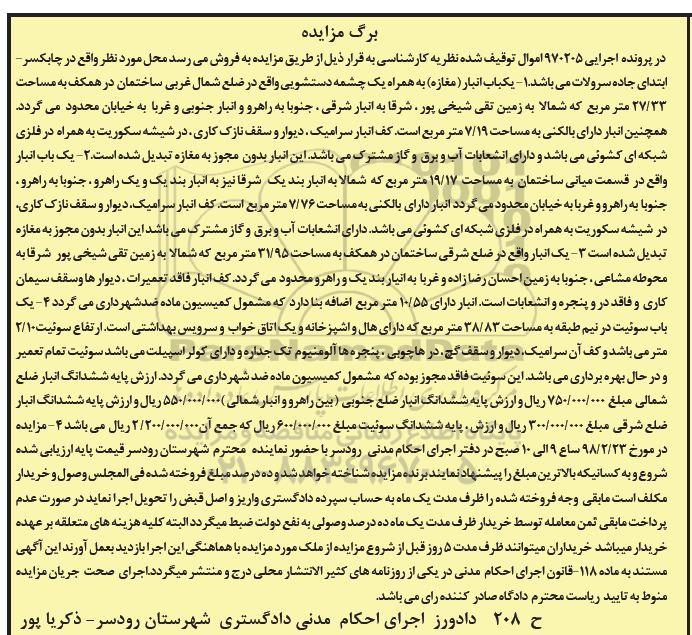 برگ مزایده
در پرونده اجرایی ۹۷۰۲۰۵ اموال توقیف شده نظریه کارشناسی به قرار ذیل از طریق مزایده به فروش می رسد محل مورد نظر واقع در چابکسر-
ابتدای جاده سرولات می باشد.۱- یکباب انبار (مغازه) به همراه یک چشمه دستشویی واقع در ضلع شمال غربی ساختمان در همکف به مساحت
۲۷/۳۳ متر مربع که شمالا به زمین تقی شیخی پور ، شرقا به انبار شرقی ، جنوبا به راهرو و انبار جنوبی و غربا به خیابان محدود می گردد.
همچنین انبار دارای بالکنی به مساحت ۷/۱۹ متر مربع است. کف انبار سرامیک ، دیوار و سقف نازک کاری ، در شیشه سکوریت به همراه در فلزی
شبکه ای کشوئی می باشد و دارای انشعابات آب و برق و گاز مشترک می باشد. این انبار بدون مجوز به مغازه تبدیل شده است.۲- یک باب انبار
واقع در قسمت میانی ساختمان به مساحت ۱۹/۱۷ متر مربع که شمالا به انبار بند یک شرقا نیز به انبار بند یک و یک راهرو ، جنوبا به راهرو ،
جنوبا به راهرو و غربا به خیابان محدود می گردد انبار دارای بالکنی به مساحت ۷/۷۶ متر مربع است. کف انبار سرامیک، دیوار و سقف نازک کاری،
در شیشه سکوریت به همراه در فلزی شبکه ای کشوئی می باشد. دارای انشعابات آب و برق و گاز مشترک می باشد این انبار بدون مجوز به مغازه
تبدیل شده است ۳- یک انبار واقع در ضلع شرقی ساختمان در همکف به مساحت ۳۱/۹۵ متر مربع که شمالا به زمین تقی شیخی پور شرقا به
محوطه مشاعی ، جنوبا به زمین احسان رضا زاده و غربا به انبار بند یک و راهرو محدود می گردد. کف انبار فاقد تعمیرات ، دیوار ها وسقف سیمان
کاری و فاقد در و پنجره و انشعابات است. انبار دارای ۱۰/۵۵ متر مربع اضافه بنا دارد که مشمول کمیسیون ماده صدشهرداری می گردد ۴- یک
باب سوئیت در نیم طبقه به مساحت ۳۸/۸۳ متر مربع که دارای هال و اشپزخانه و یک اتاق خواب و سرویس بهداشتی است. ارتفاع سوئیت۲/۱۰
متر می باشد و کف آن سرامیک، دیوار و سقف گچ ، در هاچوبی ، پنجره ها آلومنیوم تک جداره و دارای کولر اسپیلت می باشد سوئیت تمام تعمیر
و در حال بهره برداری می باشد. این سوئیت فاقد مجوز بوده که مشمول کمیسیون ماده صد شهرداری می گردد. ارزش پایه ششدانگ انبار ضلع
شمالی مبلغ ۷۵۰/۰۰۰/۰۰۰ ریال و ارزش پایه ششدانگ انبار ضلع جنوبی (بین راهرو و انبار شمالی) ۵۵۰/۰۰۰/۰۰۰ ریال و ارزش پایه ششدانگ انبار
ضلع شرقی مبلغ ۳۰۰/۰۰۰/۰۰۰ ریال و ارزش پایه ششدانگ سوئیت مبلغ ۶۰۰/۰۰۰/۰۰۰ ریال که جمع آن ۲/۲۰۰/۰۰۰/۰۰۰ ریال می باشد ۴- مزایده
در مورخ ۹۸/۲/۲۳ ساع ۹ الی ۱۰ صبح در دفتر اجرای احکام مدنی رودسر با حضور نماینده محترم شهرستان رودسر قیمت پایه ارزیابی شده
شروع و به کسانیکه بالاترین مبلغ را پیشنهاد نمایند برنده مزایده شناخته خواهد شد و ده درصد مبلغ فروخته شده فی المجلس وصول و خریدار
مکلف است مابقی وجه فروخته شده را ظرف مدت یک ماه به حساب سپرده دادگستری واریز و اصل قبض را تحویل اجرا نماید در صورت عدم
پرداخت مابقی ثمن معامله توسط خریدار ظرف مدت یک ماه ده درصد وصولی به نفع دولت ضبط میگردد البته کلیه هزینه های متعلقه بر عهده
خریدار میباشد خریداران میتوانند ظرف مدت ۵ روز قبل از شروع مزایده از ملک مورد مزایده با هماهنگی این اجرا بازدید بعمل آورند این آگهی
مستند به ماده ۱۱۸-قانون اجرای احکام مدنی در یکی از روزنامه های کثیر الانتشار محلی درج و منتشر میگردد.اجرای صحت جریان مزایده
منوط به تایید ریاست محترم دادگاه صادر کننده رای می باشد.
ح ۲۰۸ دادورز اجرای احکام مدنی دادگستری شهرستان رودسر- ذکریا پور